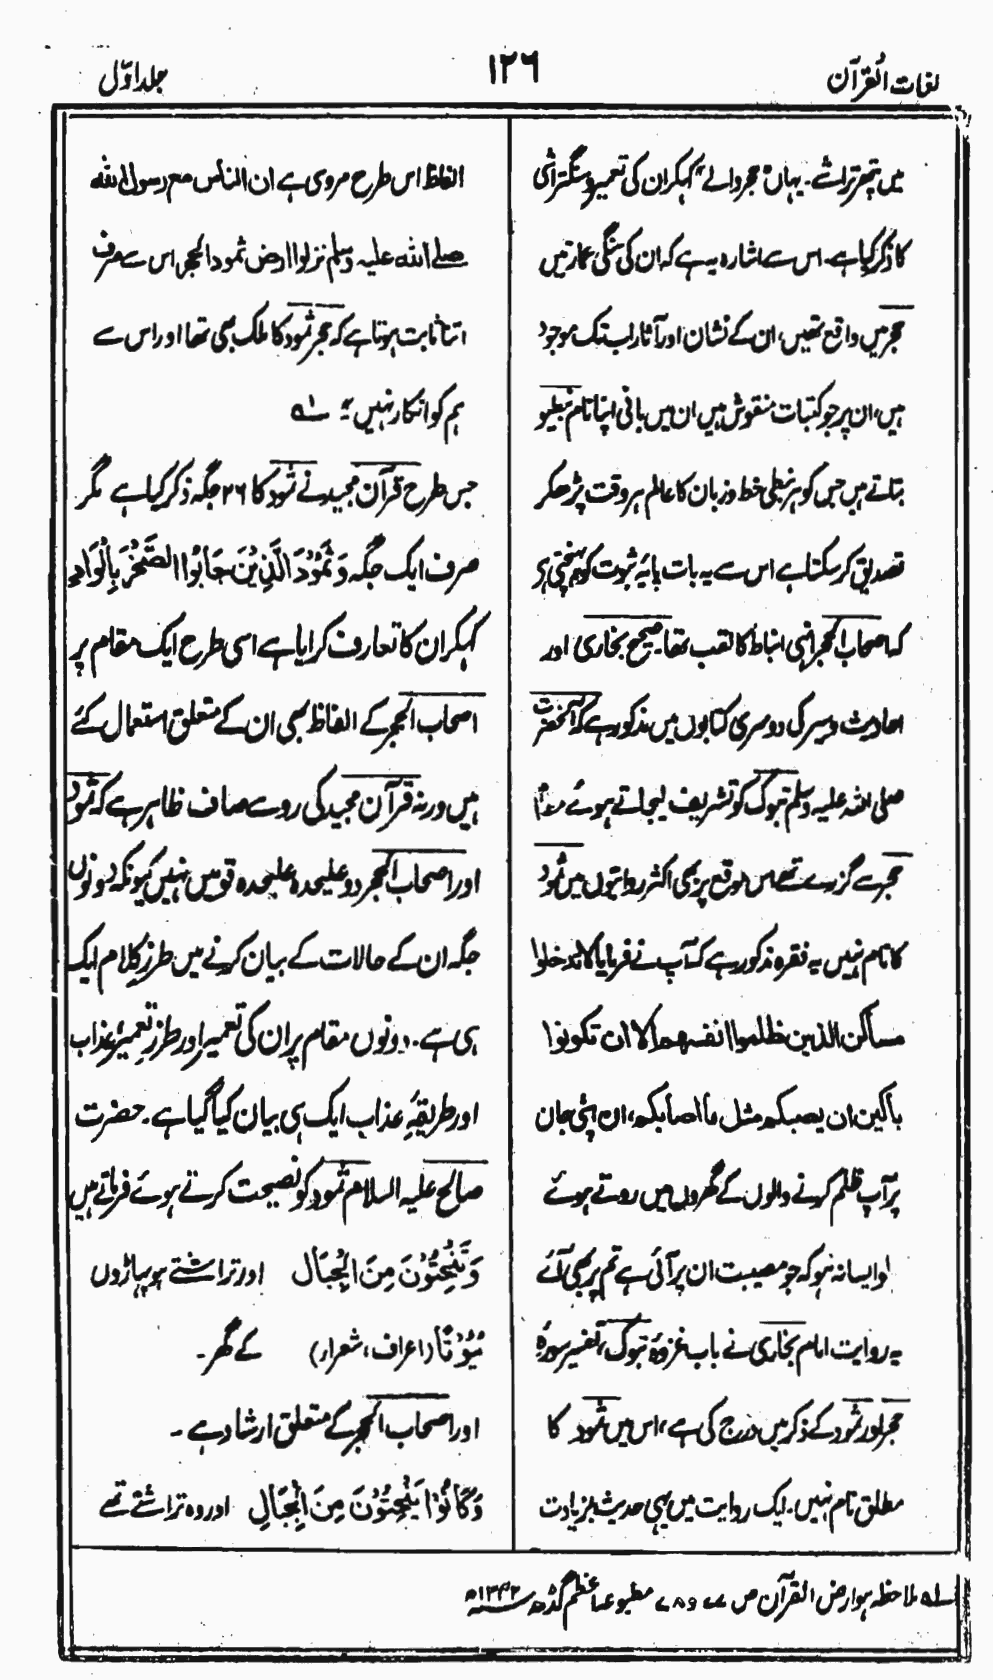 لغات القُرآن
١٢٦
جلد اوّل
میں پتھر تراشے۔ یہاں "حجر والے" کہکر ان کی تعمیر و سنگتراشی
کا ذکر کیا ہے۔ اس سے اشارہ یہ ہے کہ ان کی سنگی عمارتیں
حجر میں واقع تھیں، ان کے نشان اور آثار اب تک موجود
ہیں، ان پر جو کتبات منقوش ہیں ان میں بانی اپنا نام نبطیو
بتاتے ہیں جس کو ہر نبطی خط و زبان کا عالم ہر وقت پڑھکر
تصدیق کر سکتا ہے اس سے یہ بات پایۂ ثبوت کو پہنچتی ہے
کہ اصحاب الحجر انہی انباط کا لقب تھا۔ صحیح بخاری اور
احادیث و سیر کی دوسری کتابوں میں مذکور ہے کہ آنحضرت
صلی اللہ علیہ وسلم تبوک کو تشریف لیجاتے ہوئے
حجر سے گزرے تھے اس موقع پر بھی اکثر روایتوں میں ثمود
کا نام نہیں یہ فقرہ مذکور ہے کہ آپ نے فرمایا لا تدخلوا
مساکن الذین ظلموا انفسھم الا ان تکونوا
باکین ان یصیبکم مثل ما اصابکم، ان اپنی جان
پر آپ ظلم کرنے والوں کے گھروں میں روتے ہوئے
ایسا نہ ہو کہ جو مصیبت ان پر آئی ہے تم پر بھی آئے
یہ روایت امام بخاری نے باب غزوۂ تبوک، تفسیر سورۂ
حجر اور ثمود کے ذکر میں درج کی ہے، اس میں ثمود کا
مطلق نام نہیں۔ ایک روایت میں یہی حدیث بزیادت
الفاظ اس طرح مروی ہے ان الناس مع رسول اللہ
صلے اللہ علیہ وسلم نزلوا ارض ثمود الحجر اس سے صرف
اتنا ثابت ہوتا ہے کہ حجر ثمود کا ملک بھی تھا اور اس سے
ہم کو انکار نہیں"؛ لہ
جس طرح قرآن مجید نے ثمود کا ٢٦ جگہ ذکر کیا ہے مگر
صرف ایک جگہ وَثَمُوْدَ الَّذِیْنَ جَابُوا الصَّخْرَ بِالْوَادِ
کہکر ان کا تعارف کرایا ہے اسی طرح ایک مقام پر
اصحاب الحجر کے الفاظ بھی ان کے متعلق استعمال کئے
ہیں ورنہ قرآن مجید کی رو سے صاف ظاہر ہے کہ ثمود
اور اصحاب الحجر دو علیحدہ علیحدہ قومیں نہیں کیونکہ دونوں
جگہ ان کے حالات کے بیان کرنے میں طرزِ کلام ایک
ہی ہے۔ دونوں مقام پر ان کی تعمیر اور طرزِ تعمیر، عذاب
اور طریقۂ عذاب ایک ہی بیان کیا گیا ہے۔ حضرت
صالح علیہ السلام ثمود کو نصیحت کرتے ہوئے فرماتے ہیں
وَتَنْحِتُوْنَ مِنَ الْجِبَالِ اور تراشتے ہو پہاڑوں
بُیُوْتًا (اعراف، شعراء) کے گھر۔
اور اصحاب الحجر کے متعلق ارشاد ہے۔
وَکَانُوْا یَنْحِتُوْنَ مِنَ الْجِبَالِ اور وہ تراشتے تھے
لہ ملاحظہ ہو ارض القرآن ص ٧٧ و ٨ ٧ مطبوعہ اعظم گڈھ ١٣٤٢ھ